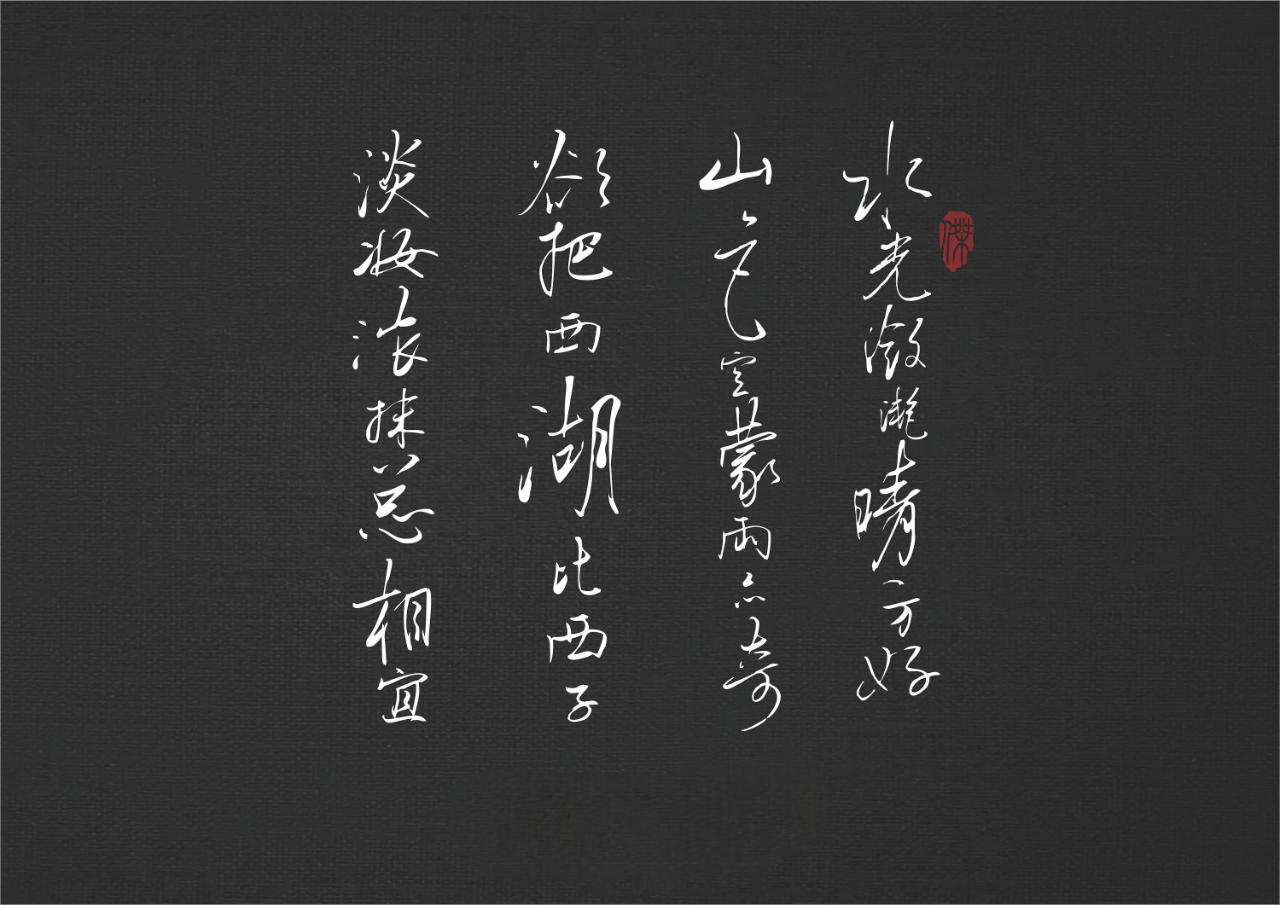 水光潋滟晴方好
山色空蒙雨亦奇
欲把西湖比西子
淡妆浓抹总相宜
傑